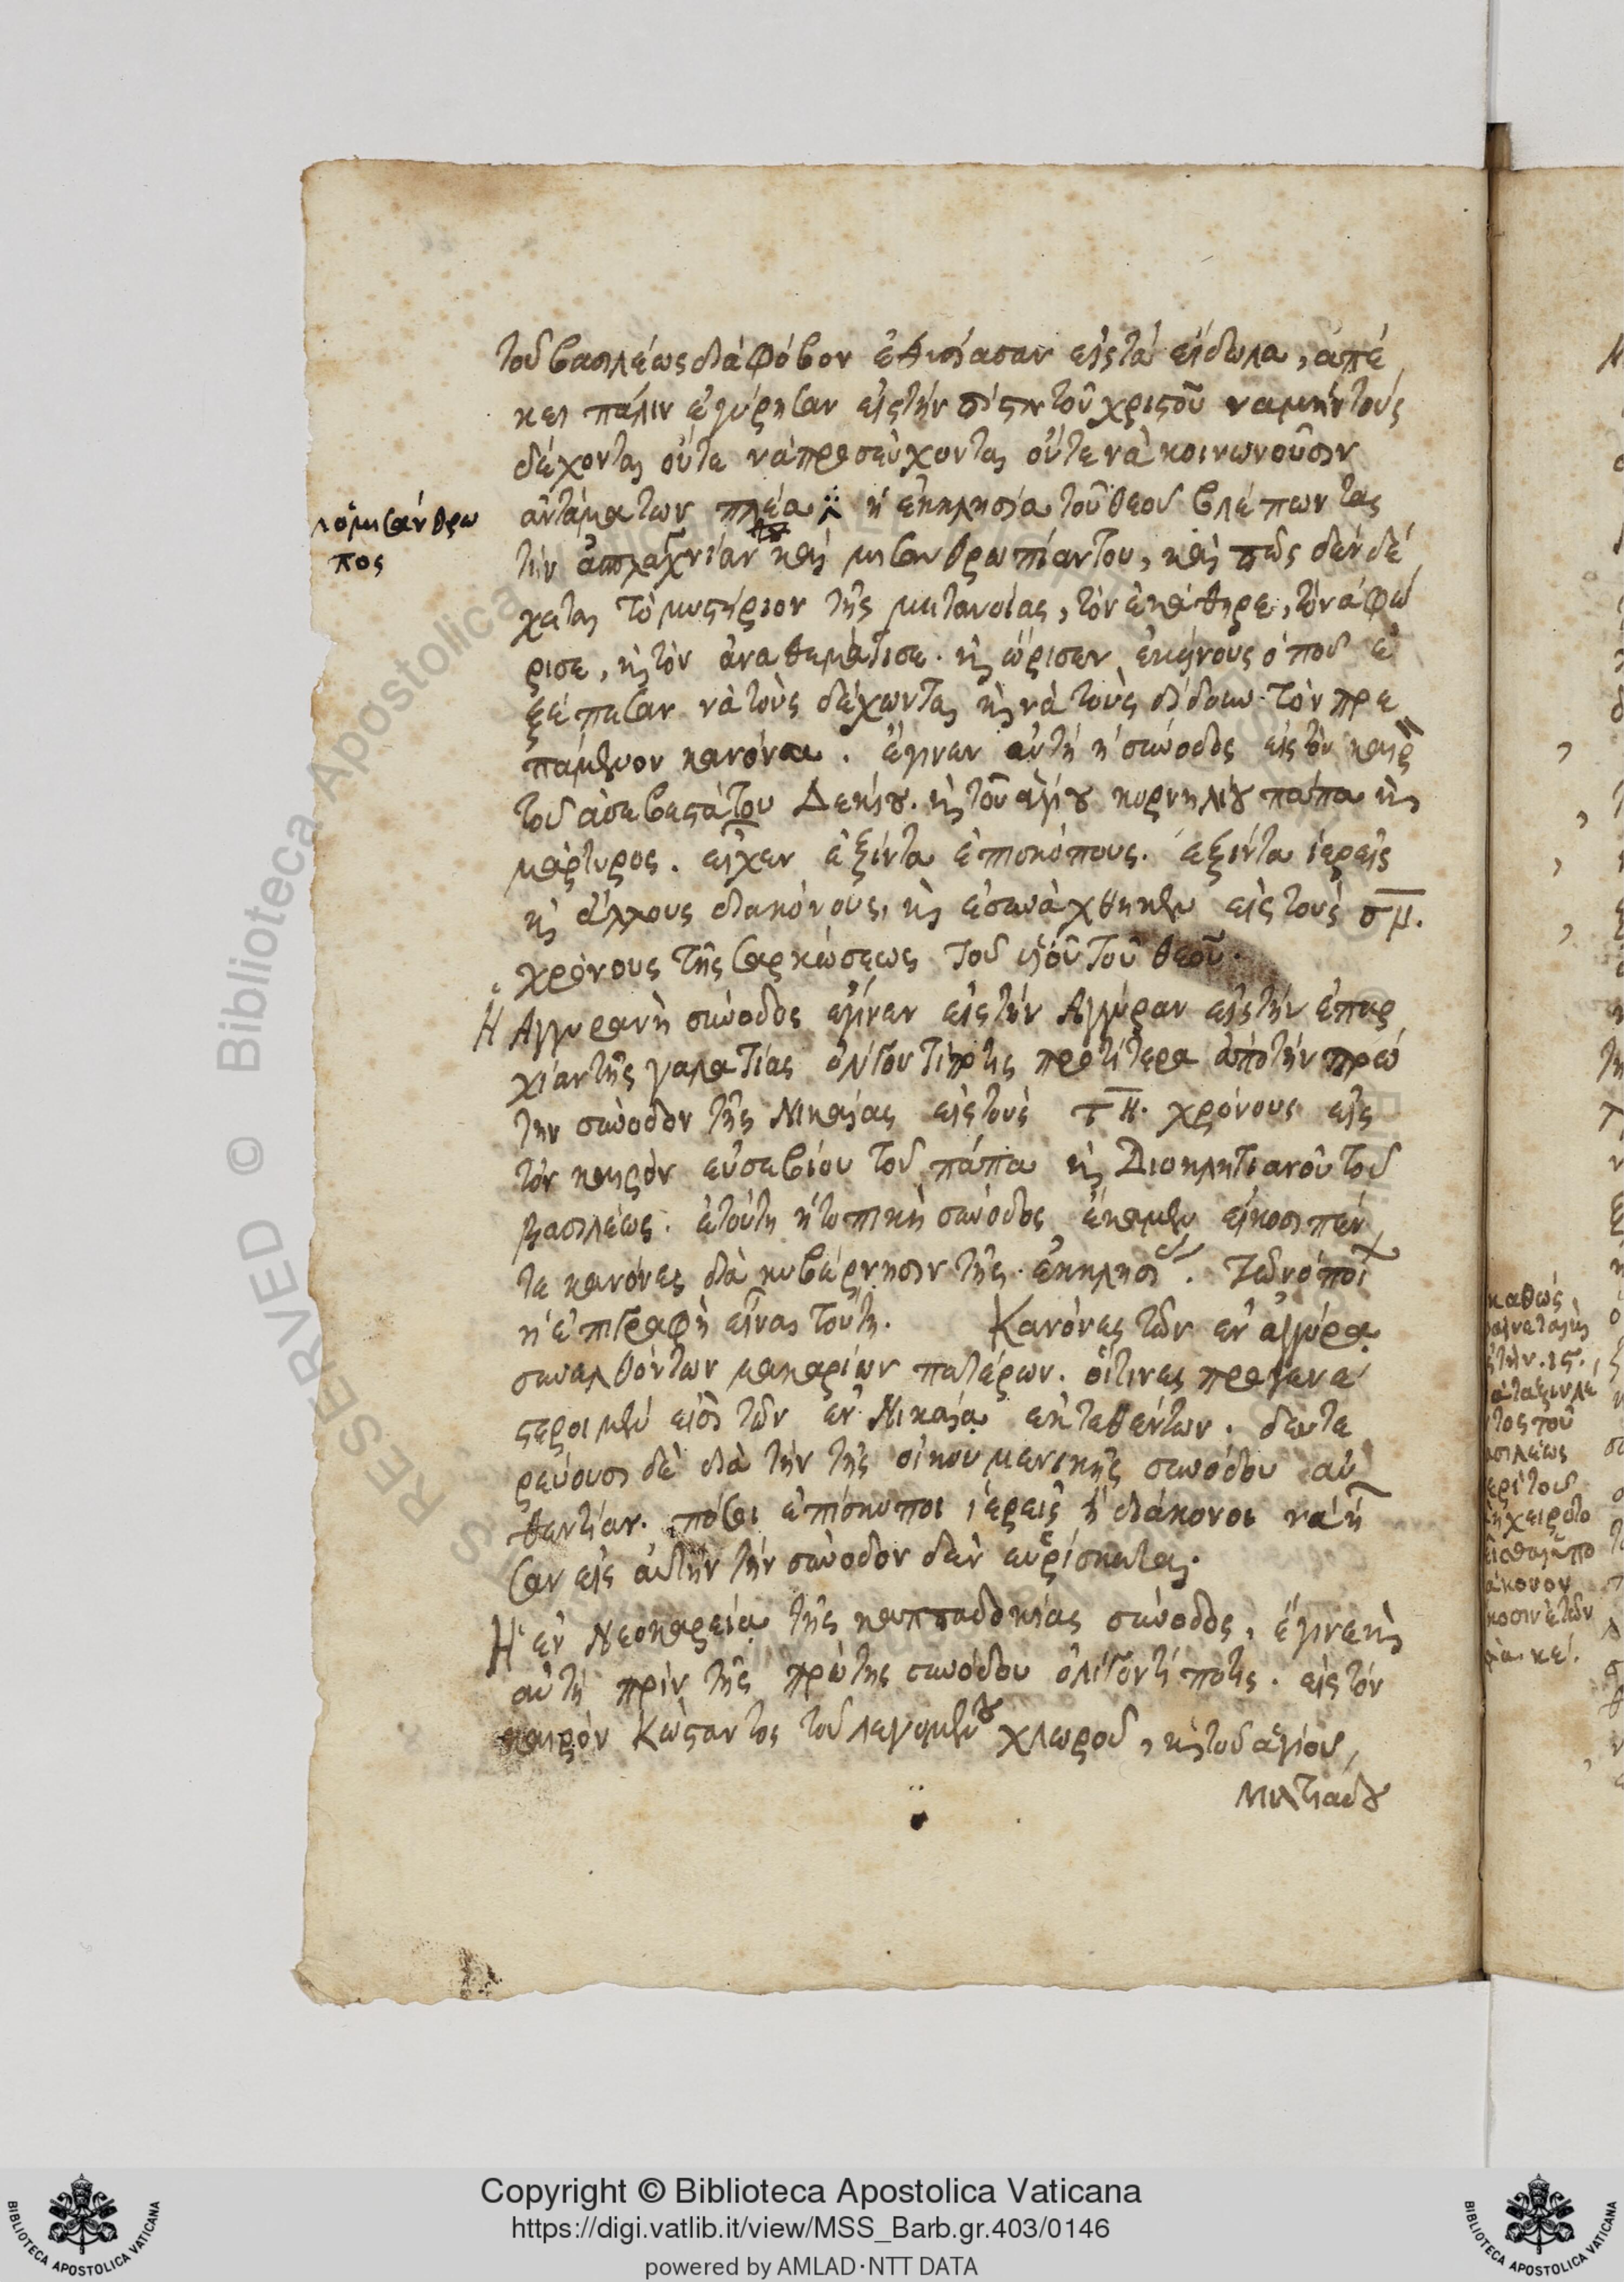 τοῦ βασιλέως διὰ φόβον ἐθισίασαν εἰς τὰ εἴδωλα, ἀπέ
κει πάλιν ἐγύρησαν εἰς τὴν πίστιν τοῦ χριστοῦ να μὴν τοὺς
δέχονται οὔτε νὰ προσεύχονται οὔτε νὰ κοινωνοῦσιν
ἀντάμα των πλέα ἡ ἐκκλησία τοῦ θεοῦ βλέπωντας
λόμισάνθρω
πος
τὴν ἀσπλαχνίαν καὶ μισανθρωπίαν του, καὶ πῶς δὲν δέ
χεται τὸ μυστήριον τῆς μετανοίας, τὸν ἐκάθηρε, τὸν ἀφώ
ρισε, κ τὸν ἀναθεμάτισε. κ ὥρισεν ἐκείνους ὁποῦ ἐ
ξέπεσαν νὰ τοὺς δέχωνται κ νὰ τοὺς δίδουν τὸν πρε
πάμενον κανόνα. ἔγινεν αὐτὴ ἡ σύνοδος εἰς τὸν καιρ
τοῦ ἀσεβεστάτου Δεκίου. κ τοῦ ἁγίου κορνηλίου πάπα κ
μάρτυρος. εἶχεν ἑξίντα ἐπισκόπους. ἑξίντα ἱερεῖς
κ ἄλλους διακόνους, κ ἐσυνάχθηκεν εἰς τοὺς σμ.
χρόνους τῆς σαρκώσεως τοῦ υἱοῦ τοῦ θεοῦ.
Ἡ Αγγυρανὴ σύνοδος ἐγίνεν εἰς τὴν Αγγύραν εἰς τὴν ἐπαρ
χίαν τῆς γαλατίας ὀλίγον τίποτις προτίτερα ἀπὸ τὴν πρώ
την σύνοδον τῆς Νικαίας εἰς τοὺς τη. χρόνους εἰς
τὸν καιρὸν εὐσεβίου τοῦ πάπα κ Διοκλητιανοῦ τοῦ
βασιλέως. ἐτούτη ἡ τοπικὴ σύνοδος ἔκαμεν εἴκοσι πέν
τε κανόνες διὰ κυβέρνησιν τῆς ἐκκλησί. τῶν ὁποί
ἡ ἐπιγραφὴ εἶναι τούτη. Κανόνες τῶν ἐν ἀγγύρᾳ
συνελθόντων μακαρίων πατέρων. οἵτινες προγενέ
στεροι μὲν εἰσὶ τῶν ἐν Νικαίᾳ ἐκτεθέντων. δευτε
ρεύουσι δὲ διὰ τὴν τῆς οἰκουμενικῆς συνόδου αὐ
θεντίαν. πόσοι ἐπίσκοποι ἱερεῖς ἢ διάκονοι νὰ ἦ
σαν εἰς αὐτὴν τὴν σύνοδον δὲν εὑρίσκεται.
Ἡ ἐν Νεοκαρείᾳ τῆς καππαδοκίας σύνοδος, ἔγινε κ
αὐτὴ πρὶν τῆς πρώτης συνόδου ὀλίγόν τί ποτις. εἰς τὸν
καιρὸν Κώσταντος τοῦ λεγομένου χλωροῦ, κ τοῦ ἁγίου
Μιλτιάδου
Copyright © Biblioteca Apostolica Vaticana
https://digi.vatlib.it/view/MSS_Barb.gr.403/0146
powered by AMLAD·NTT DATA